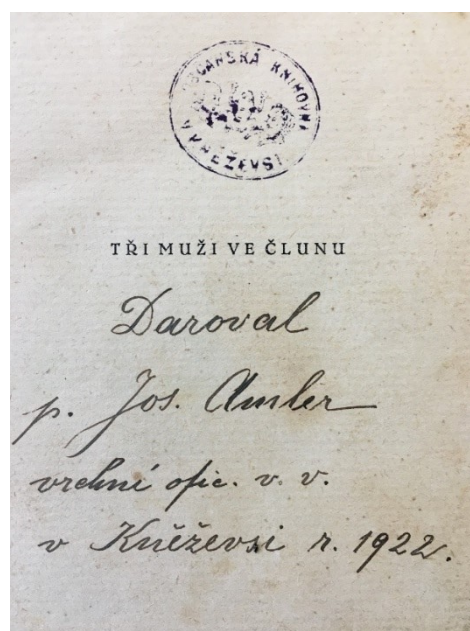 OBČANSKÁ KNIHOVNA
V KNĚŽEVSI
TŘI MUŽI VE ČLUNU
Daroval
p. Jos. Amler
vrchní ofic. v. v.
v Kněževsi r. 1922.